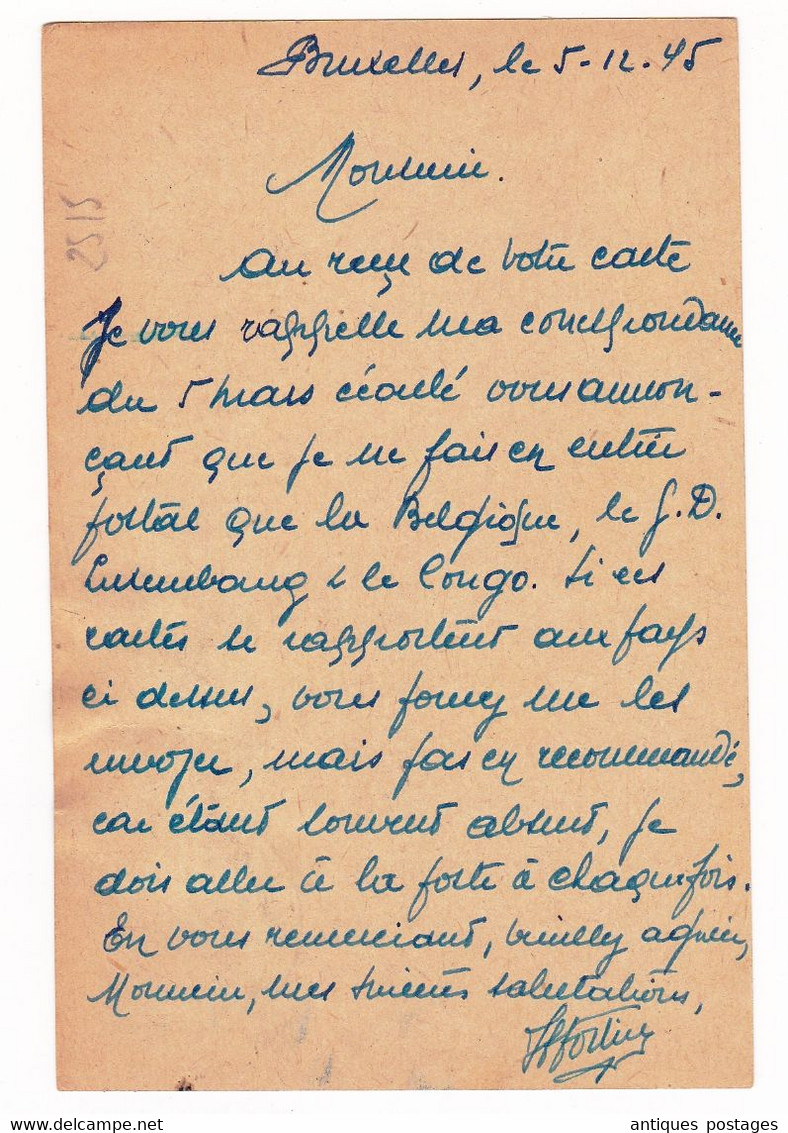 Bruxelles, le 5-12.45
Monsieur.
25/5
Au reçu de votre carte
Je vous rappelle ma correspondance
du 5 mars écoulé vous annon-
çant que je ne fais en entier
postal que la Belgique, le G.D.
Luxembourg & le Congo. Si ces
cartes se rapportent aux pays
ci dessus, vous pouvez me les
envoyer, mais pas en recommandé,
car étant souvent absent, je
dois aller à la poste à chaque fois.
En vous remerciant, veuillez agréer,
Monsieur, mes sincères salutations,
antiques postages